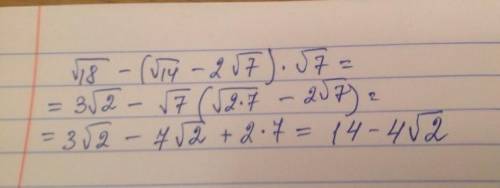 √18 − (√14 − 2√7) · √7 =
= 3√2 − √7 (√2·7 − 2√7) =
= 3√2 − 7√2 + 2·7 = 14 − 4√2